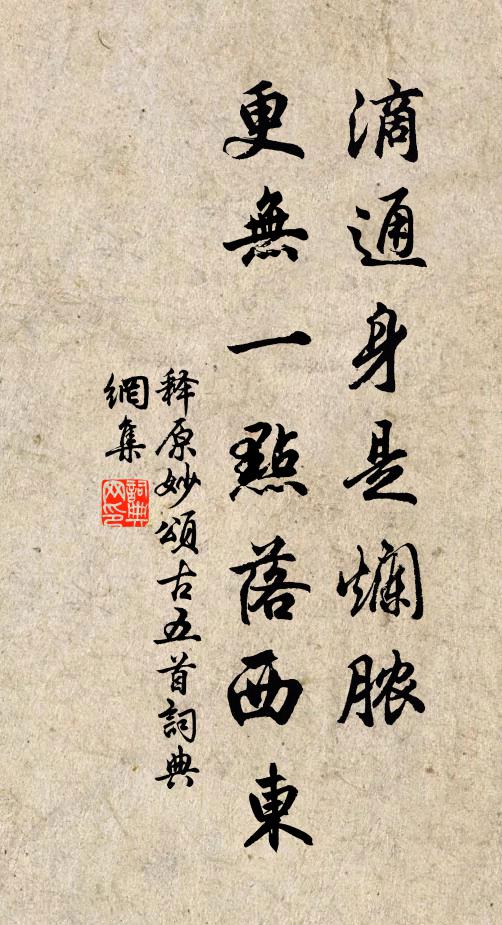 滴通身是爛膿
更無一點落西東
释原妙頌古五首詞典
網集
詞典
网印